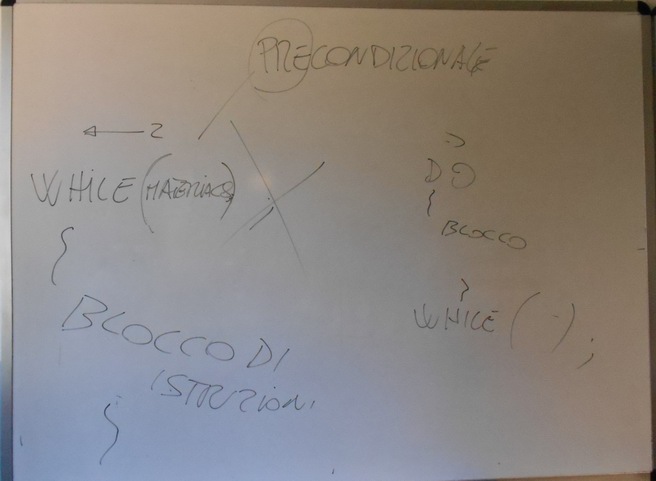 PRECONDIZIONALE
2
WHILE ( ) ;
{
BLOCCO DI
ISTRUZIONI
}
DO
{
BLOCCO
}
WHILE ( - ) ;